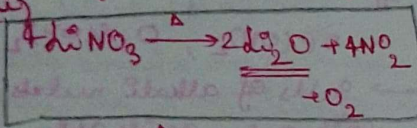 4LiNO₃ —Δ→ 2Li₂O + 4NO₂
+O₂